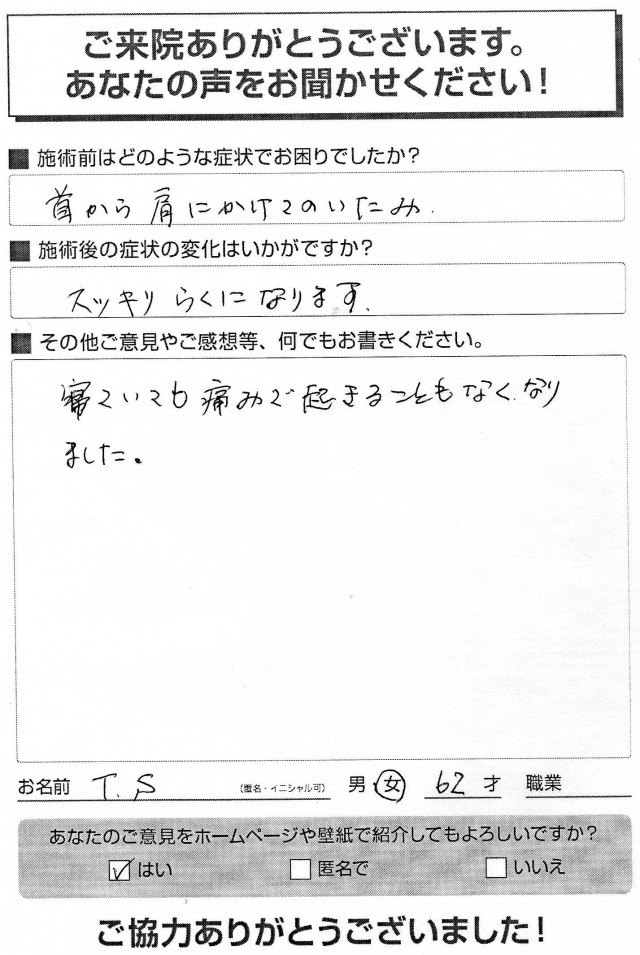 ご来院ありがとうございます。
あなたの声をお聞かせください！
■ 施術前はどのような症状でお困りでしたか？
首から肩にかけてのいたみ.
■ 施術後の症状の変化はいかがですか？
スッキリらくになります.
■ その他ご意見やご感想等、何でもお書きください。
寝ていても痛みで起きることもなくなり
ました。
お名前 T.S （匿名・イニシャル可） 男・女 62 才 職業
あなたのご意見をホームページや壁紙で紹介してもよろしいですか？
☑ はい □ 匿名で □ いいえ
ご協力ありがとうございました！